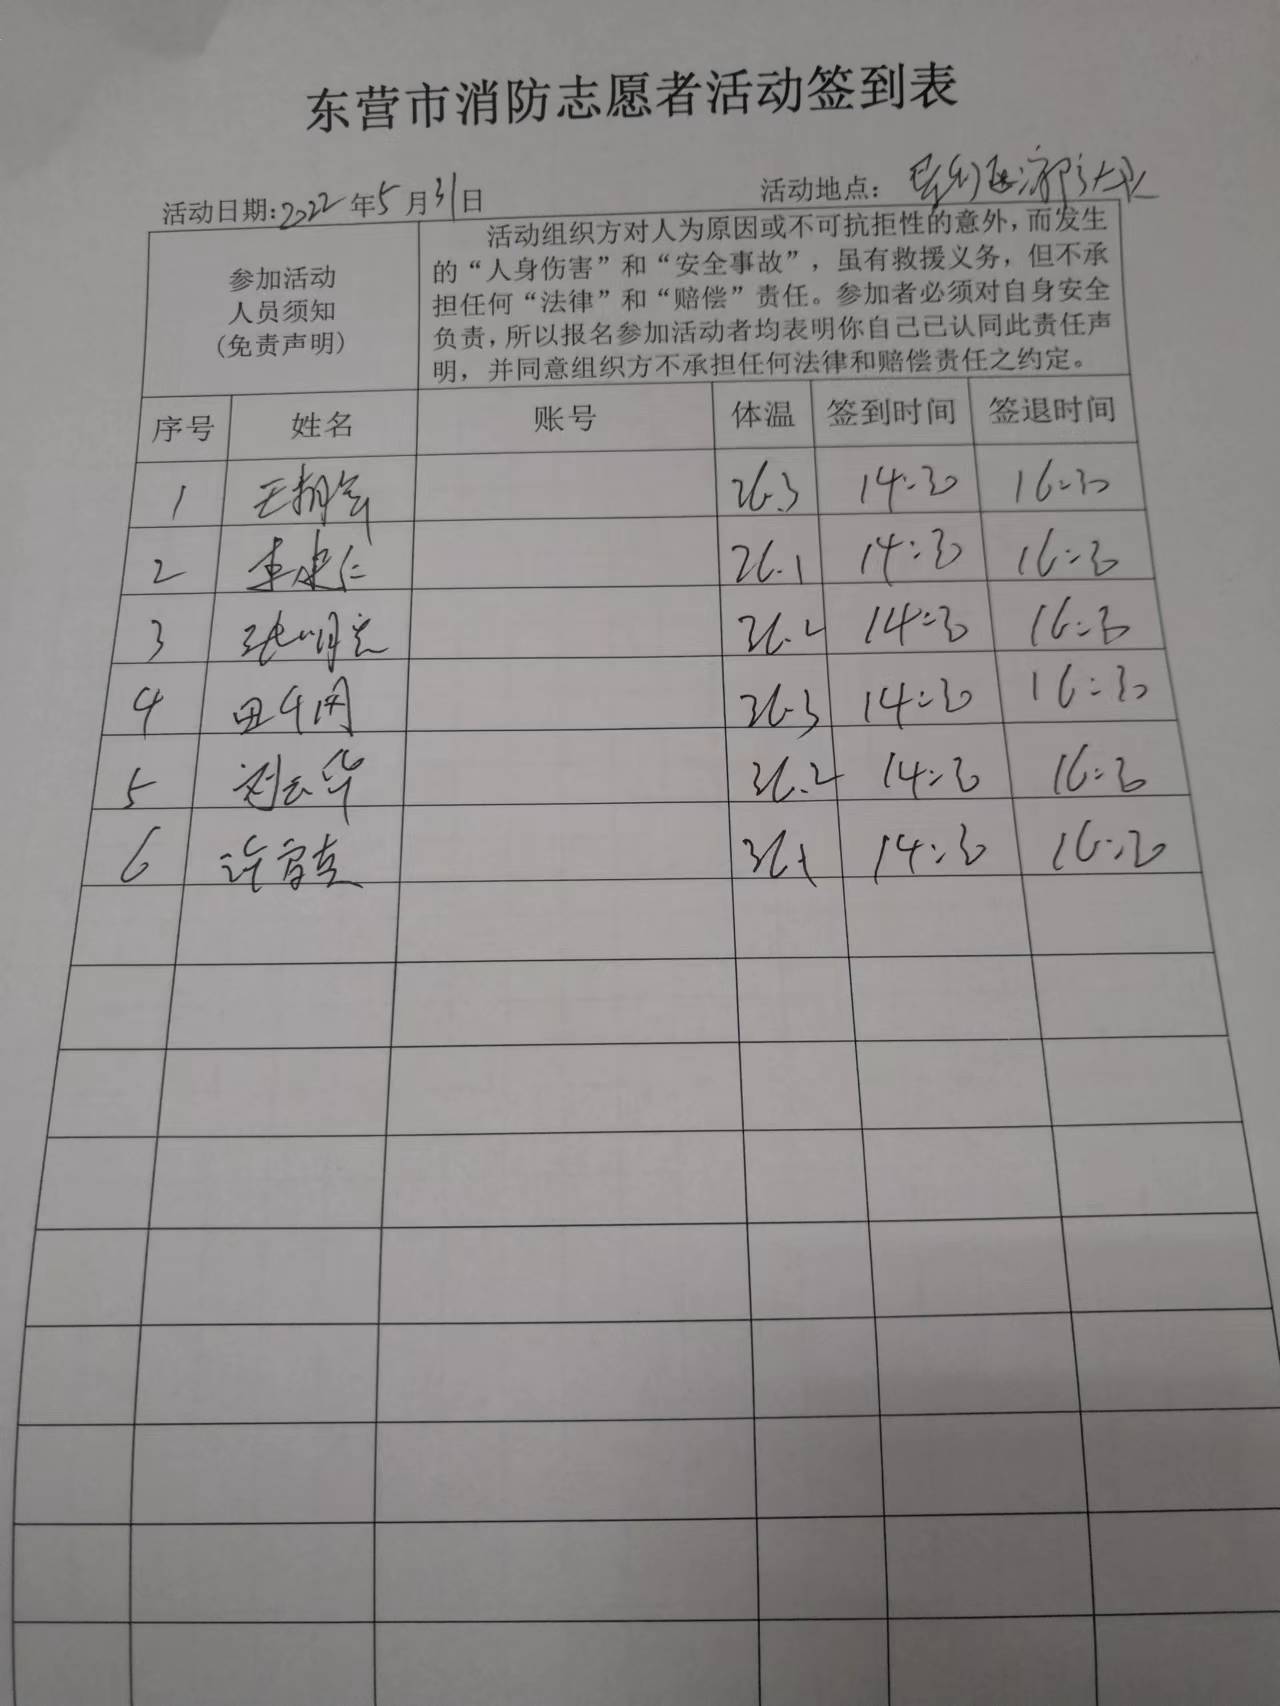 东营市消防志愿者活动签到表
活动日期:2022年5月31日 活动地点: 大队
参加活动
人员须知
(免责声明)
活动组织方对人为原因或不可抗拒性的意外,而发生
的“人身伤害”和“安全事故”,虽有救援义务,但不承
担任何“法律”和“赔偿”责任。参加者必须对自身安全
负责,所以报名参加活动者均表明你自己已认同此责任声
明,并同意组织方不承担任何法律和赔偿责任之约定。
序号 姓名 账号 体温 签到时间 签退时间
1 36.3 14:30 16:30
2 李建仁 36.1 14:30 16:30
3 张明 36.2 14:30 16:30
4 36.3 14:30 16:30
5 刘云华 36.2 14:30 16:30
6 许 36.1 14:30 16:30